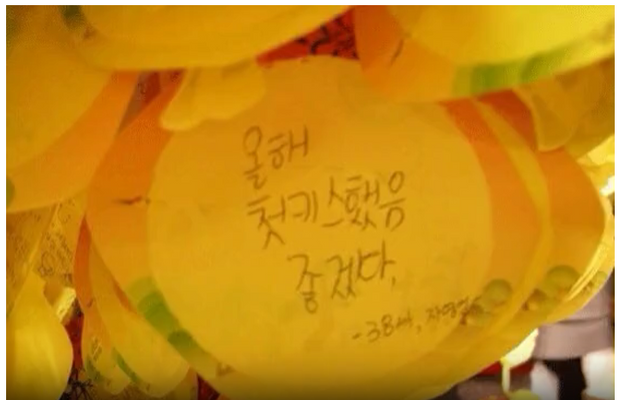 올해
첫키스했음
좋겠다,
-38세,